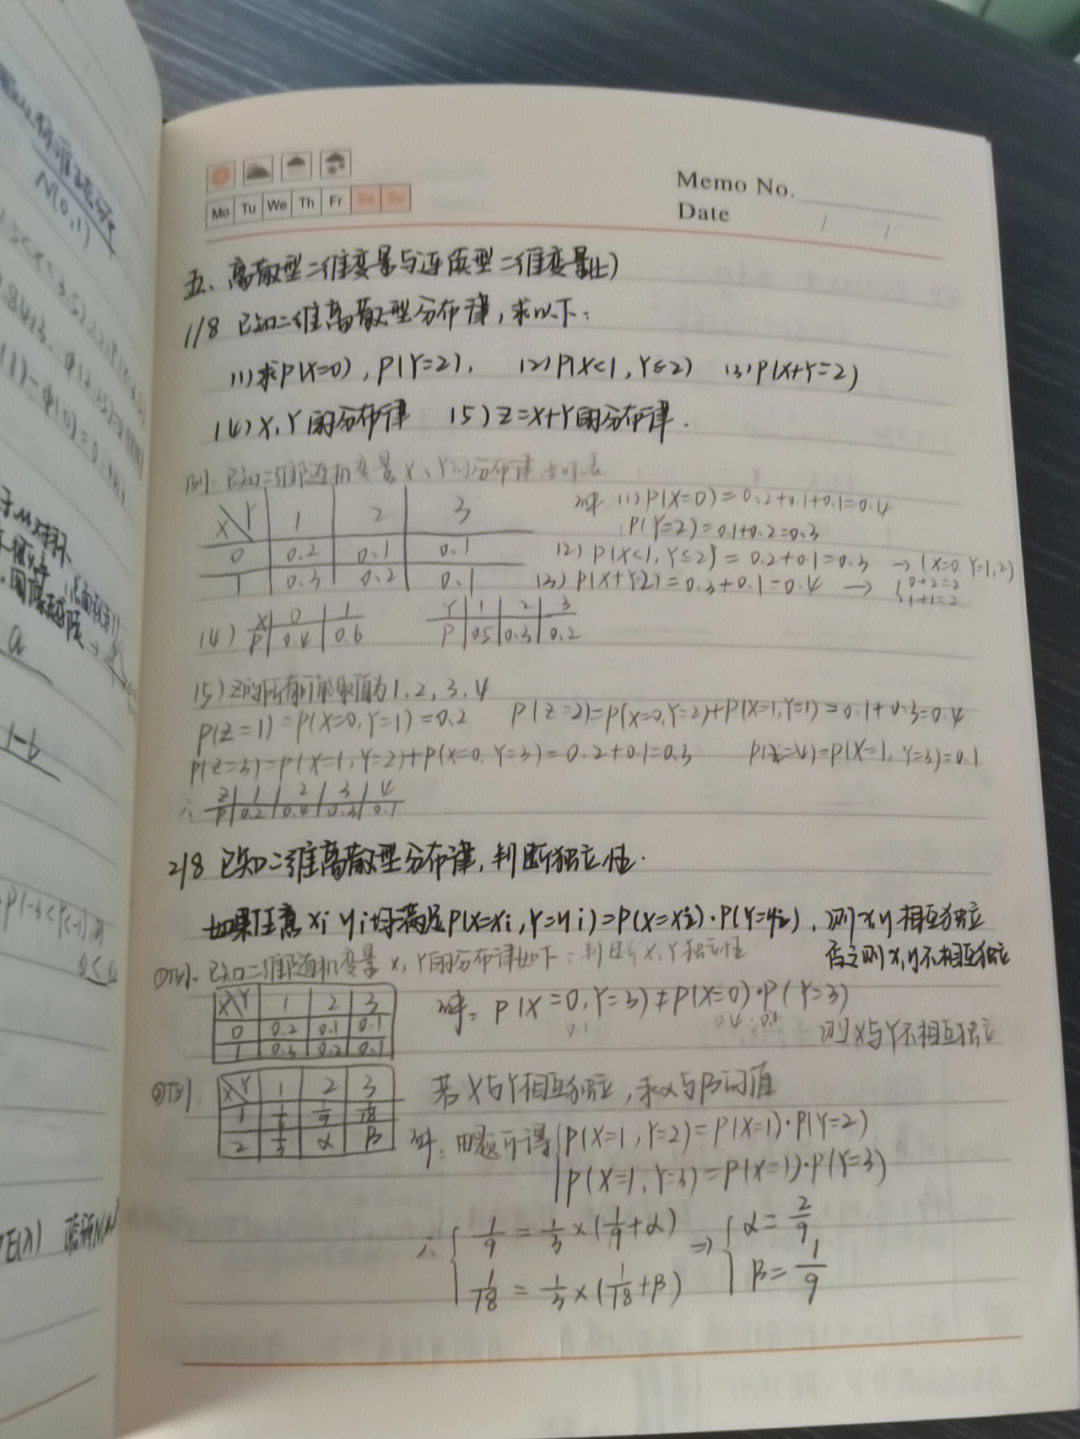 Mo Tu We Th Fr Sa Su
Memo No.
Date / /
五、离散型二维变量与连续型二维变量(上)
1/8 已知二维离散型分布律,求以下:
(1)求P(X=0),P(Y=2), (2)P(X<1,Y≤2) (3)P(X+Y=2)
(4)X,Y的分布律 (5)Z=X+Y的分布律.
例:已知二维随机变量X、Y的分布律如下表
X Y 1 2 3
0 0.2 0.1 0.1
1 0.3 0.2 0.1
解 (1)P(X=0)=0.2+0.1+0.1=0.4
P(Y=2)=0.1+0.2=0.3
(2) P{X<1,Y≤2}=0.2+0.1=0.3 → (X=0,Y=1,2)
(3) P(X+Y=2)=0.3+0.1=0.4 → {0+2=2
1+1=2
(4) X 0 1
P 0.4 0.6
Y 1 2 3
P 0.5 0.3 0.2
(5)Z的所有可能取值为1,2,3,4
P(Z=1)=P(X=0,Y=1)=0.2 P(Z=2)=P(X=0,Y=2)+P(X=1,Y=1)=0.1+0.3=0.4
P(Z=3)=P(X=1,Y=2)+P(X=0,Y=3)=0.2+0.1=0.3 P(Z=4)=P(X=1,Y=3)=0.1
∴ Z 1 2 3 4
P 0.2 0.4 0.3 0.1
2/8 已知二维离散型分布律,判断独立性.
如果任意xi yi均满足P(X=xi,Y=yi)=P(X=xi)·P(Y=yi),则x,y相互独立
否之则x,y不相互独立
①例.已知二维随机变量X,Y的分布律如下:判断X,Y独立性
X Y 1 2 3
0 0.2 0.1 0.1
1 0.3 0.2 0.1
解:P(X=0,Y=3)≠P(X=0)·P(Y=3)
0.1 0.4
则X与Y不相互独立
②例
X Y 1 2 3
1 1/6 1/9 1/18
2 1/3 α β
若X与Y相互独立,求α与β的值
解:由题可得{P(X=1,Y=2)=P(X=1)·P(Y=2)
P(X=1,Y=3)=P(X=1)·P(Y=3)
∴ { 1/9 = 1/3×(1/9+α) ⇒ { α=2/9
1/18 = 1/3×(1/18+β) β=1/9
N(0,1)